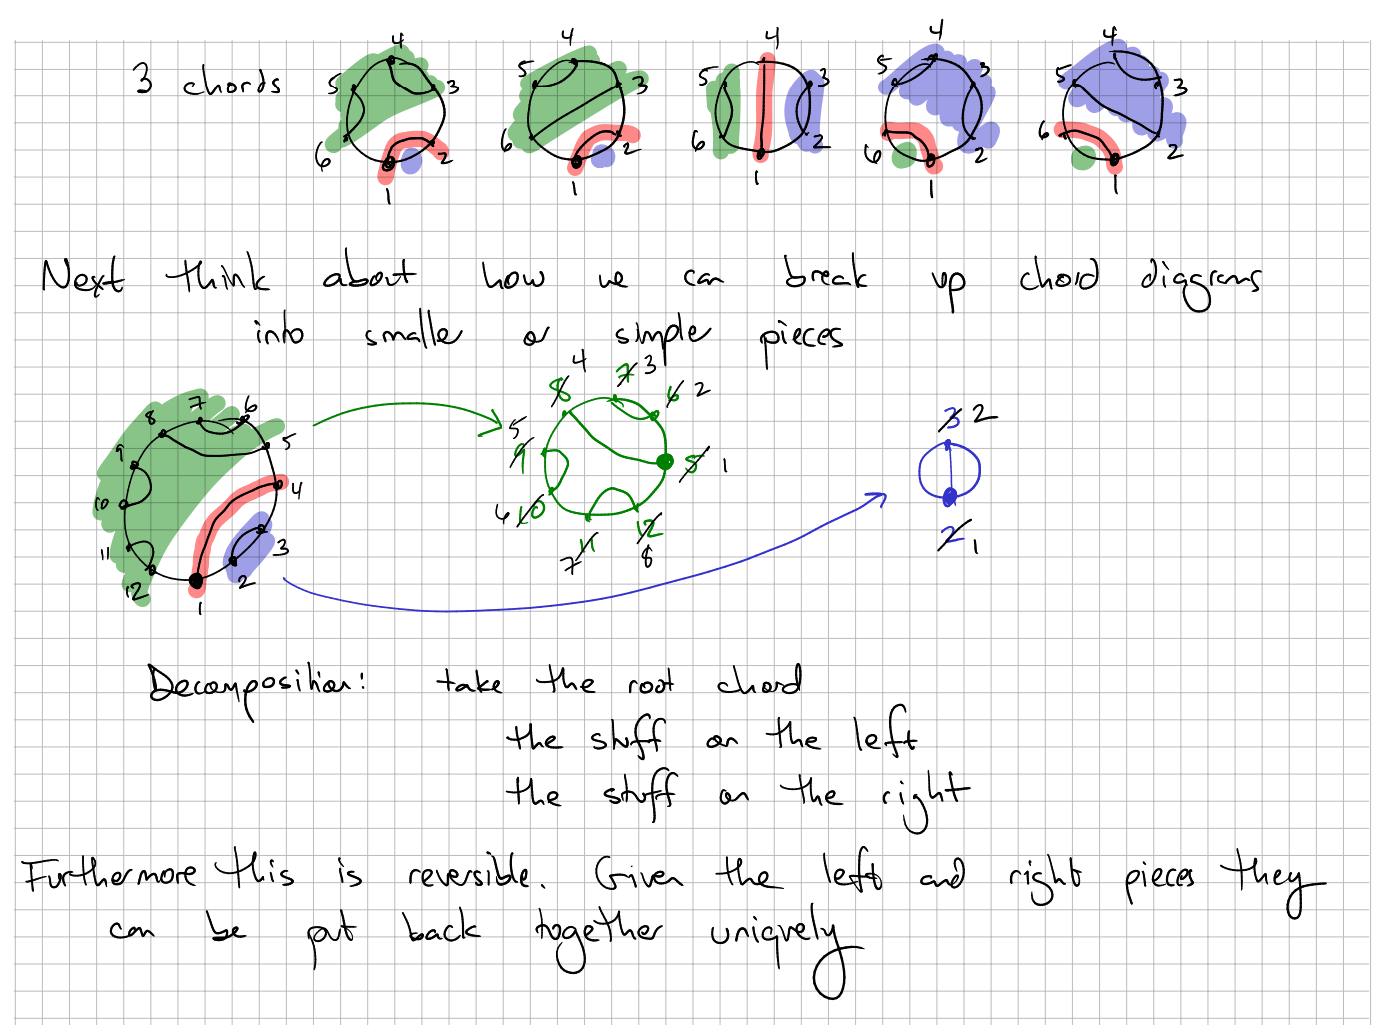 3 chords
4 5 3 6 2 1
4 5 3 6 2 1
4 5 3 6 2 1
4 5 3 6 2 1
4 5 3 6 2 1
Next think about how we can break up chord diagrams
into smaller or simple pieces
8 7 6 5 9 4 10 3 11 2 12 1
8 4 7 3 6 2 5 1 9 5 10 6 11 7 12 8
3 2
2 1
Decomposition: take the root chord
the stuff on the left
the stuff on the right
Furthermore this is reversible. Given the left and right pieces they
can be put back together uniquely